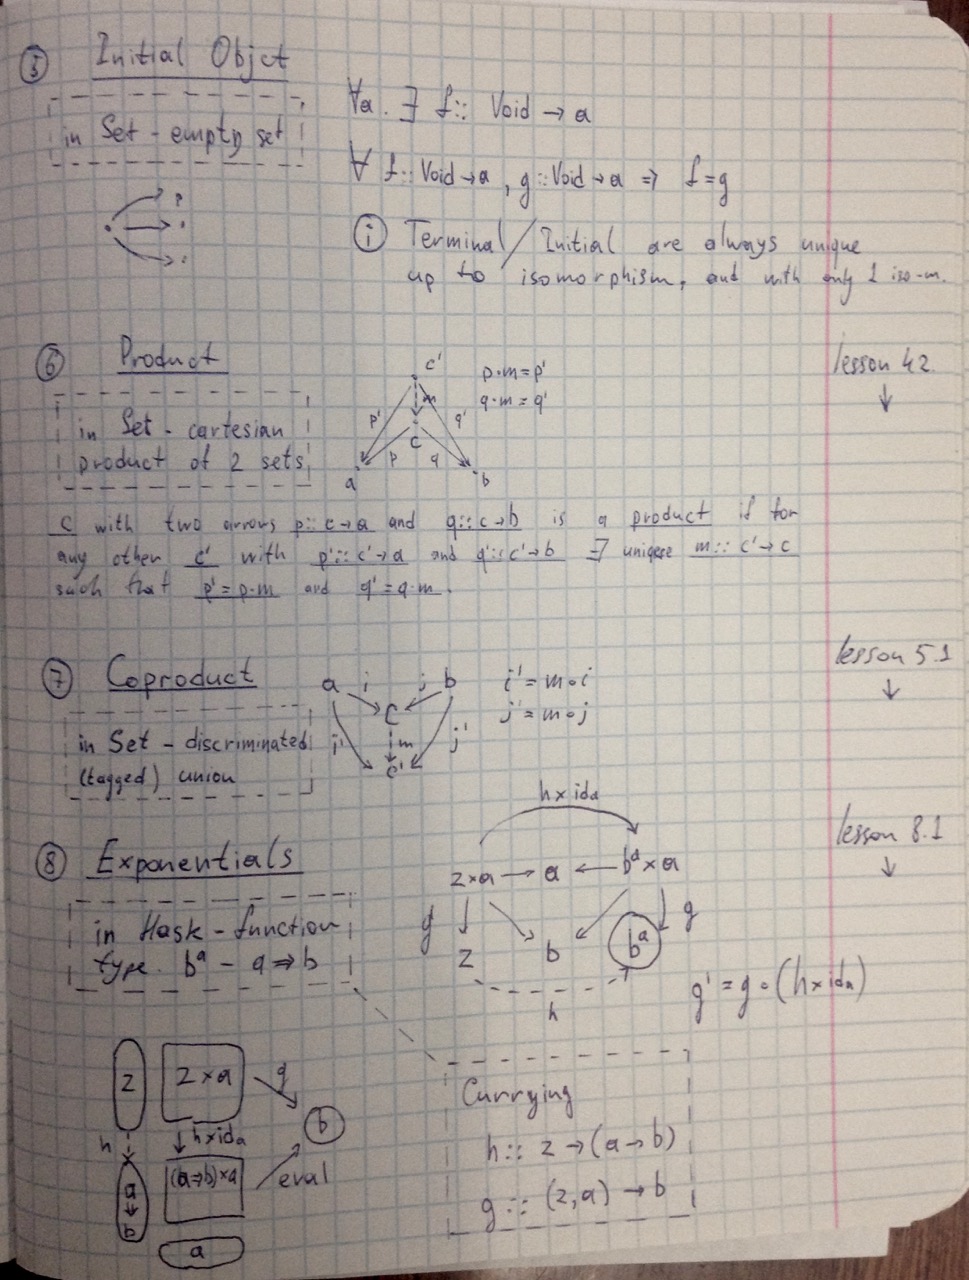 ⑤ Initial Objct
in Set - empty set
∀a. ∃ f:: Void → a
∀ f:: Void→a, g::Void→a => f=g
ⓘ Terminal/Initial are always unique
up to isomorphism, and with only 1 iso-m.
⑥ Product
lesson 4.2
↓
in Set - cartesian
product of 2 sets
c'
p∘m=p'
q∘m=q'
m
p' q'
c
p q
a b
c with two arrows p::c→a and q::c→b is a product if for
any other c' with p'::c'→a and q'::c'→b ∃ unique m::c'→c
such that p'=p∘m and q'=q∘m.
⑦ Coproduct
lesson 5.1
↓
in Set - discriminated
(tagged) union
a i j b
c
i' m j'
c'
i' = m∘i
j' = m∘j
⑧ Exponentials
lesson 8.1
↓
in Hask - function
type. bᵃ - a⇒b
h×ida
z×a → a ← bᵃ×a
g g
z b bᵃ
h
g' = g∘(h×ida)
z z×a g
b
h h×ida
a→b (a⇒b)×a eval
a
Currying
h:: z→(a→b)
g:: (z,a)→b